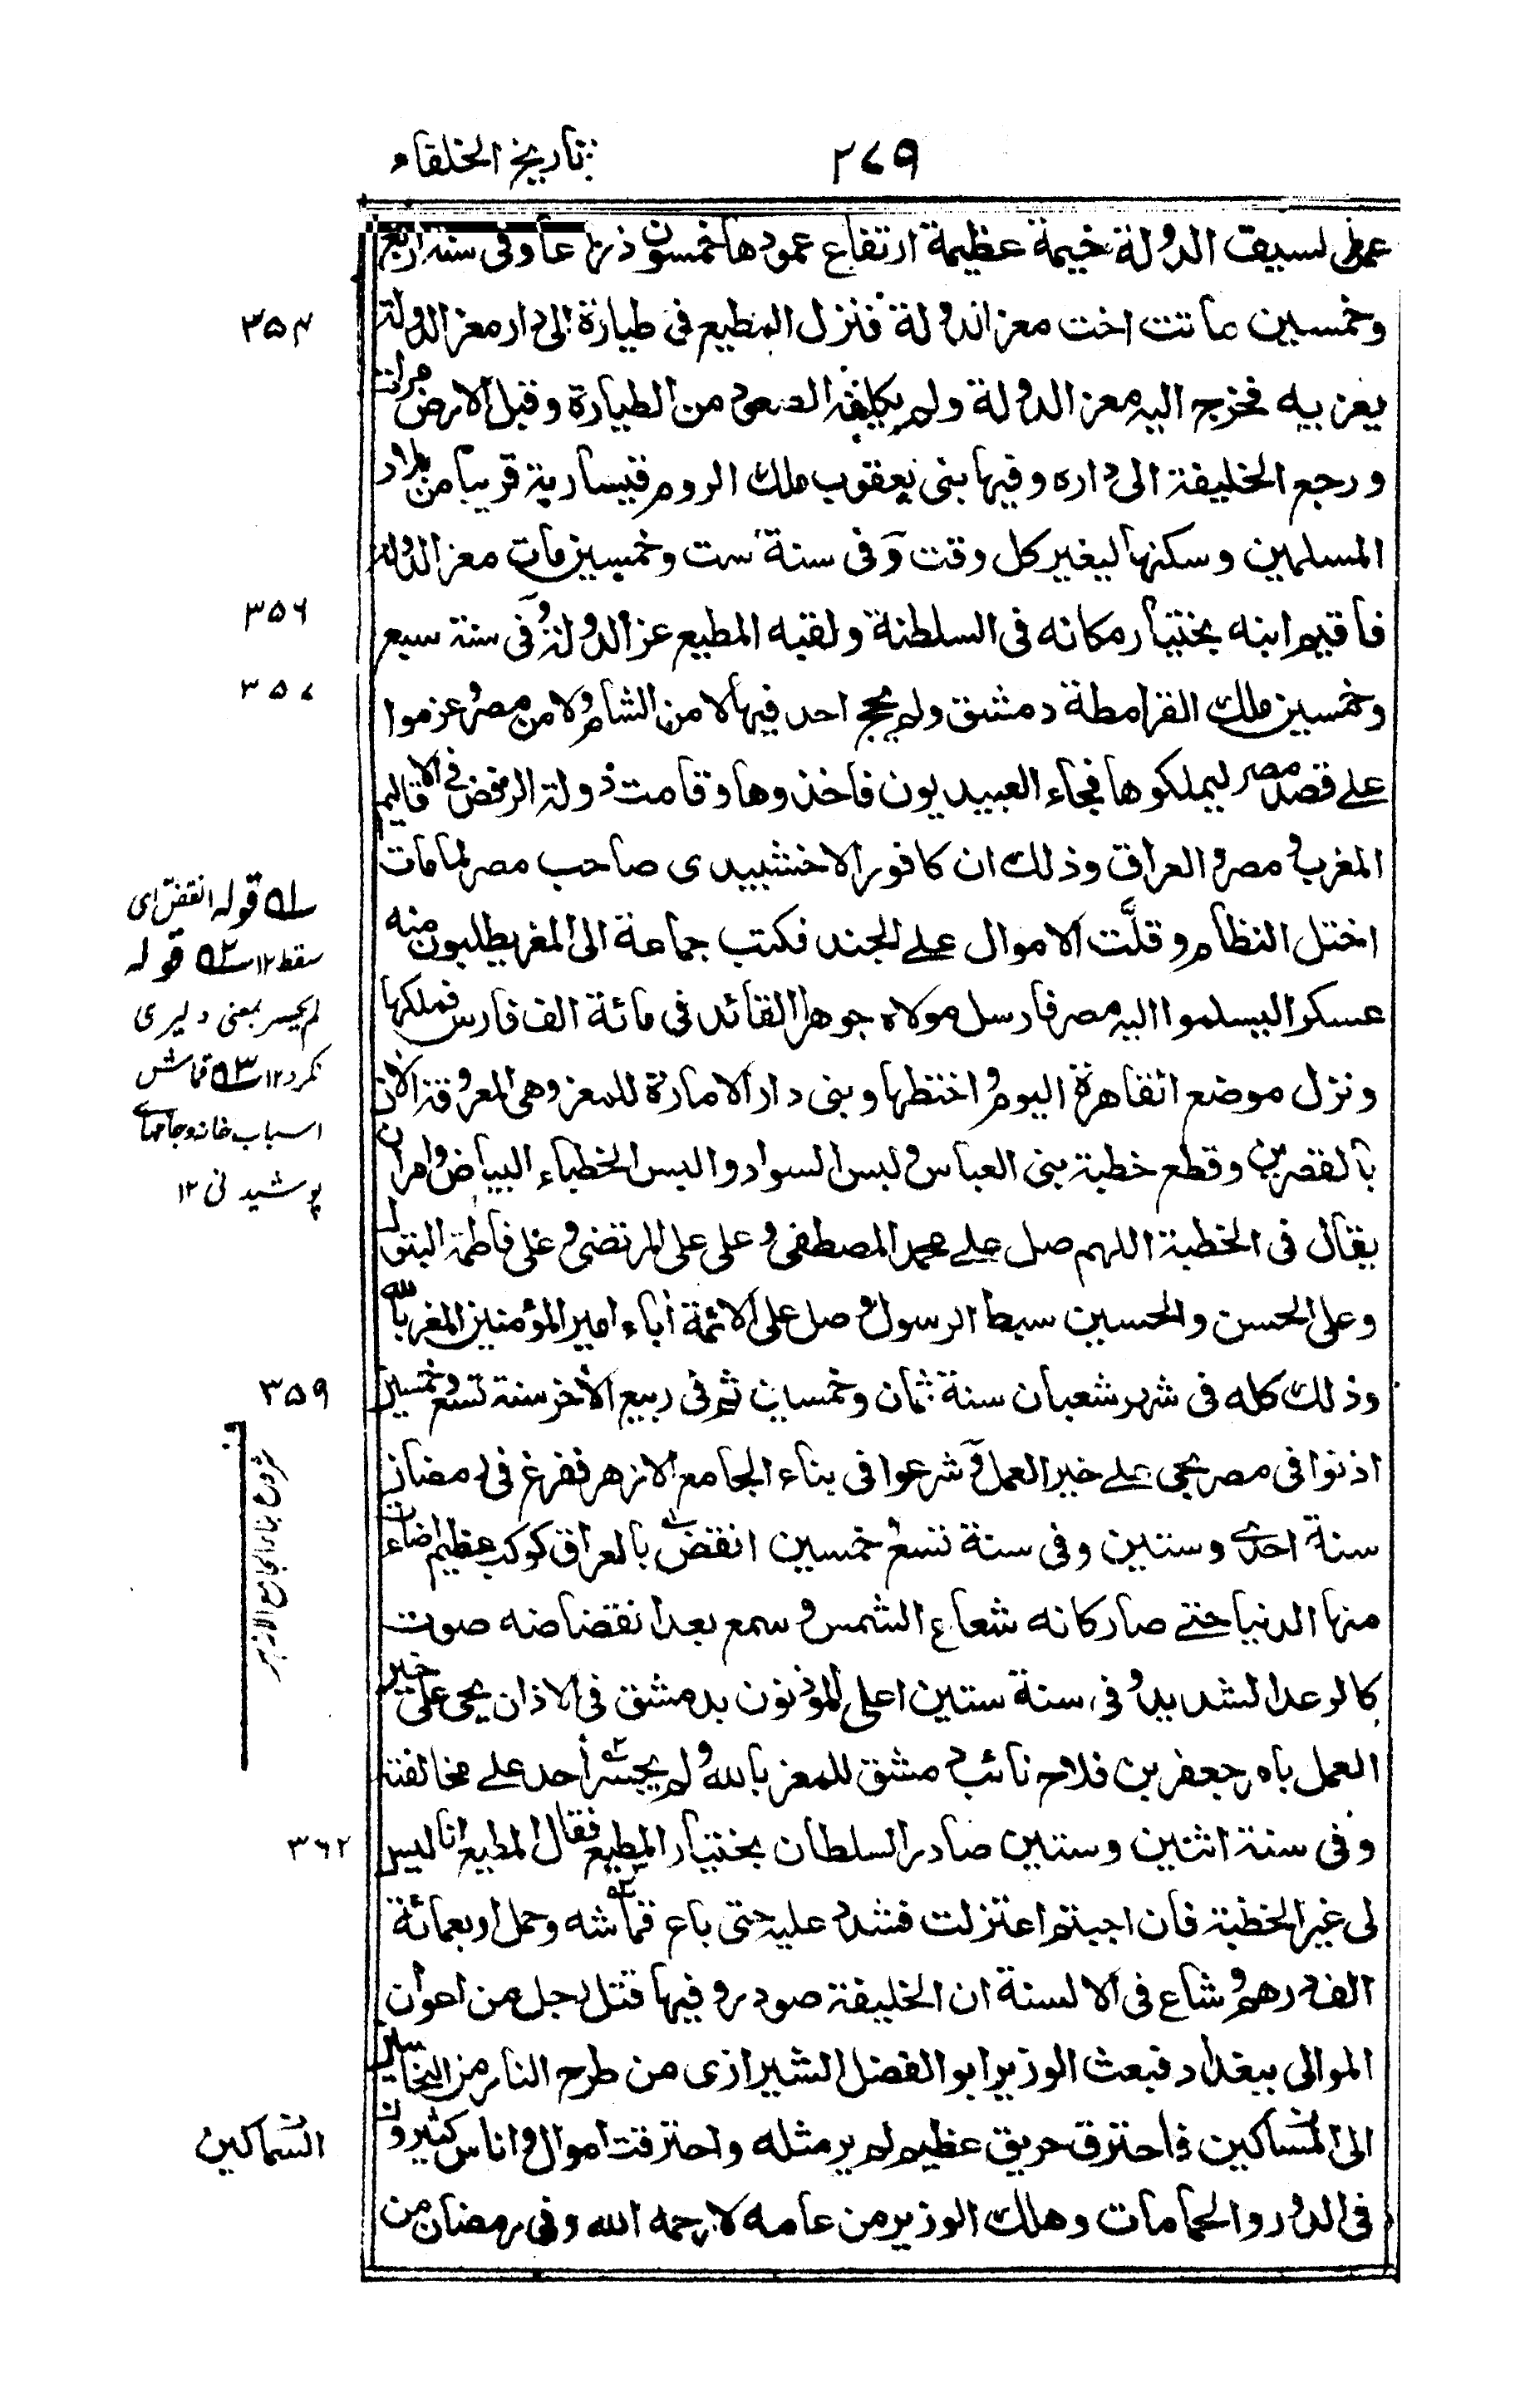 تاريخ الخلفاء
٢٧٩
عمل لسيف الدولة خيمة عظيمة ارتفاع عمودها خمسون ذراعا وفى سنة اربع
وخمسين ماتت اخت معز الدولة فنزل المطيع فى طيارة الى دار معز الدولة
يعزيه فخرج اليه معز الدولة ولم يكلفه الصعود من الطيارة وقبل الارض مرات
ورجع الخليفة الى داره وفيها بنى يعقوب ملك الروم قيسارية قريبا من بلاد
المسلمين وسكنها ليغير كل وقت وفى سنة ست وخمسين مات معز الدولة
فاقيم ابنه بختيار مكانه فى السلطنة ولقبه المطيع عز الدولة وفى سنة سبع
وخمسين ملك القرامطة دمشق ولم يحج احد فيها لا من الشام ولا من مصر وعزموا
على قصد مصر ليملكوها فجاء العبيديون فاخذوها وقامت دولة الرفض فى الاقاليم
المغرب ومصر والعراق وذلك ان كافور الاخشيدى صاحب مصر لما مات
اختل النظام وقلَّت الاموال على الجند فكتب جماعة الى المغر يطلبون منه
عسكرا ليسلموا اليه مصر فارسل مولاه جوهرا القائد فى مائة الف فارس فملكها
ونزل موضع القاهرة اليوم واختطها وبنى دار الامارة للمعز وهى المعروفة الآن
بالقصرين وقطع خطبة بنى العباس ولبس السواد والبس الخطباء البياض وامر ان
يقال فى الخطبة اللهم صل على محمد المصطفى وعلى على المرتضى وعلى فاطمة البتول
وعلى الحسن والحسين سبط الرسول وصل على الائمة آباء امير المؤمنين المغر بالله
وذلك كله فى شهر شعبان سنة ثمان وخمسين ثم فى ربيع الآخر سنة تسع وخمسين
اذنوا فى مصر بحى على خير العمل وشرعوا فى بناء الجامع الازهر ففرغ فى رمضان
سنة احدى وستين وفى سنة تسع وخمسين انقض بالعراق كوكب عظيم اضاءت
منها الدنيا حتى صار كانه شعاع الشمس وسمع بعد انقضاضه صوت
كالرعد الشديد وفى سنة ستين اعلى المؤذنون بدمشق فى الاذان بحى على خير
العمل بامر جعفر بن فلاح نائب دمشق للمعز بالله ولم يجسر أحد على مخالفته
وفى سنة اثنين وستين صادر السلطان بختيار المطيع فقال المطيع انا ليس
لى غير الخطبة فان احببتم اعتزلت فشدد عليه حتى باع قماشه وحمل اربعمائة
الف درهم وشاع فى الالسنة ان الخليفة صودر وفيها قتل رجل من اعوان
الموالى ببغداد فبعث الوزير ابو الفضل الشيرازى من طرح النار من النخاسين
الى السماكين فاحترق حريق عظيم لم ير مثله واحترقت اموال واناس كثيرون
فى الدور والحمامات وهلك الوزير من عامه لا رحمه الله وفى رمضان من
٣٥٤
٣٥٦
٣٥٧
١ قوله انقض اى
سقط ١٢ ٢ قوله
لم يجسر بمعنى دليرى
نكرد ١٢ ٣ قماش
اسباب خانه وجامهاے
پوشيدنى ١٢
٣٥٩
شروع بناء الجامع الازهر
٣٦٢
السماكين